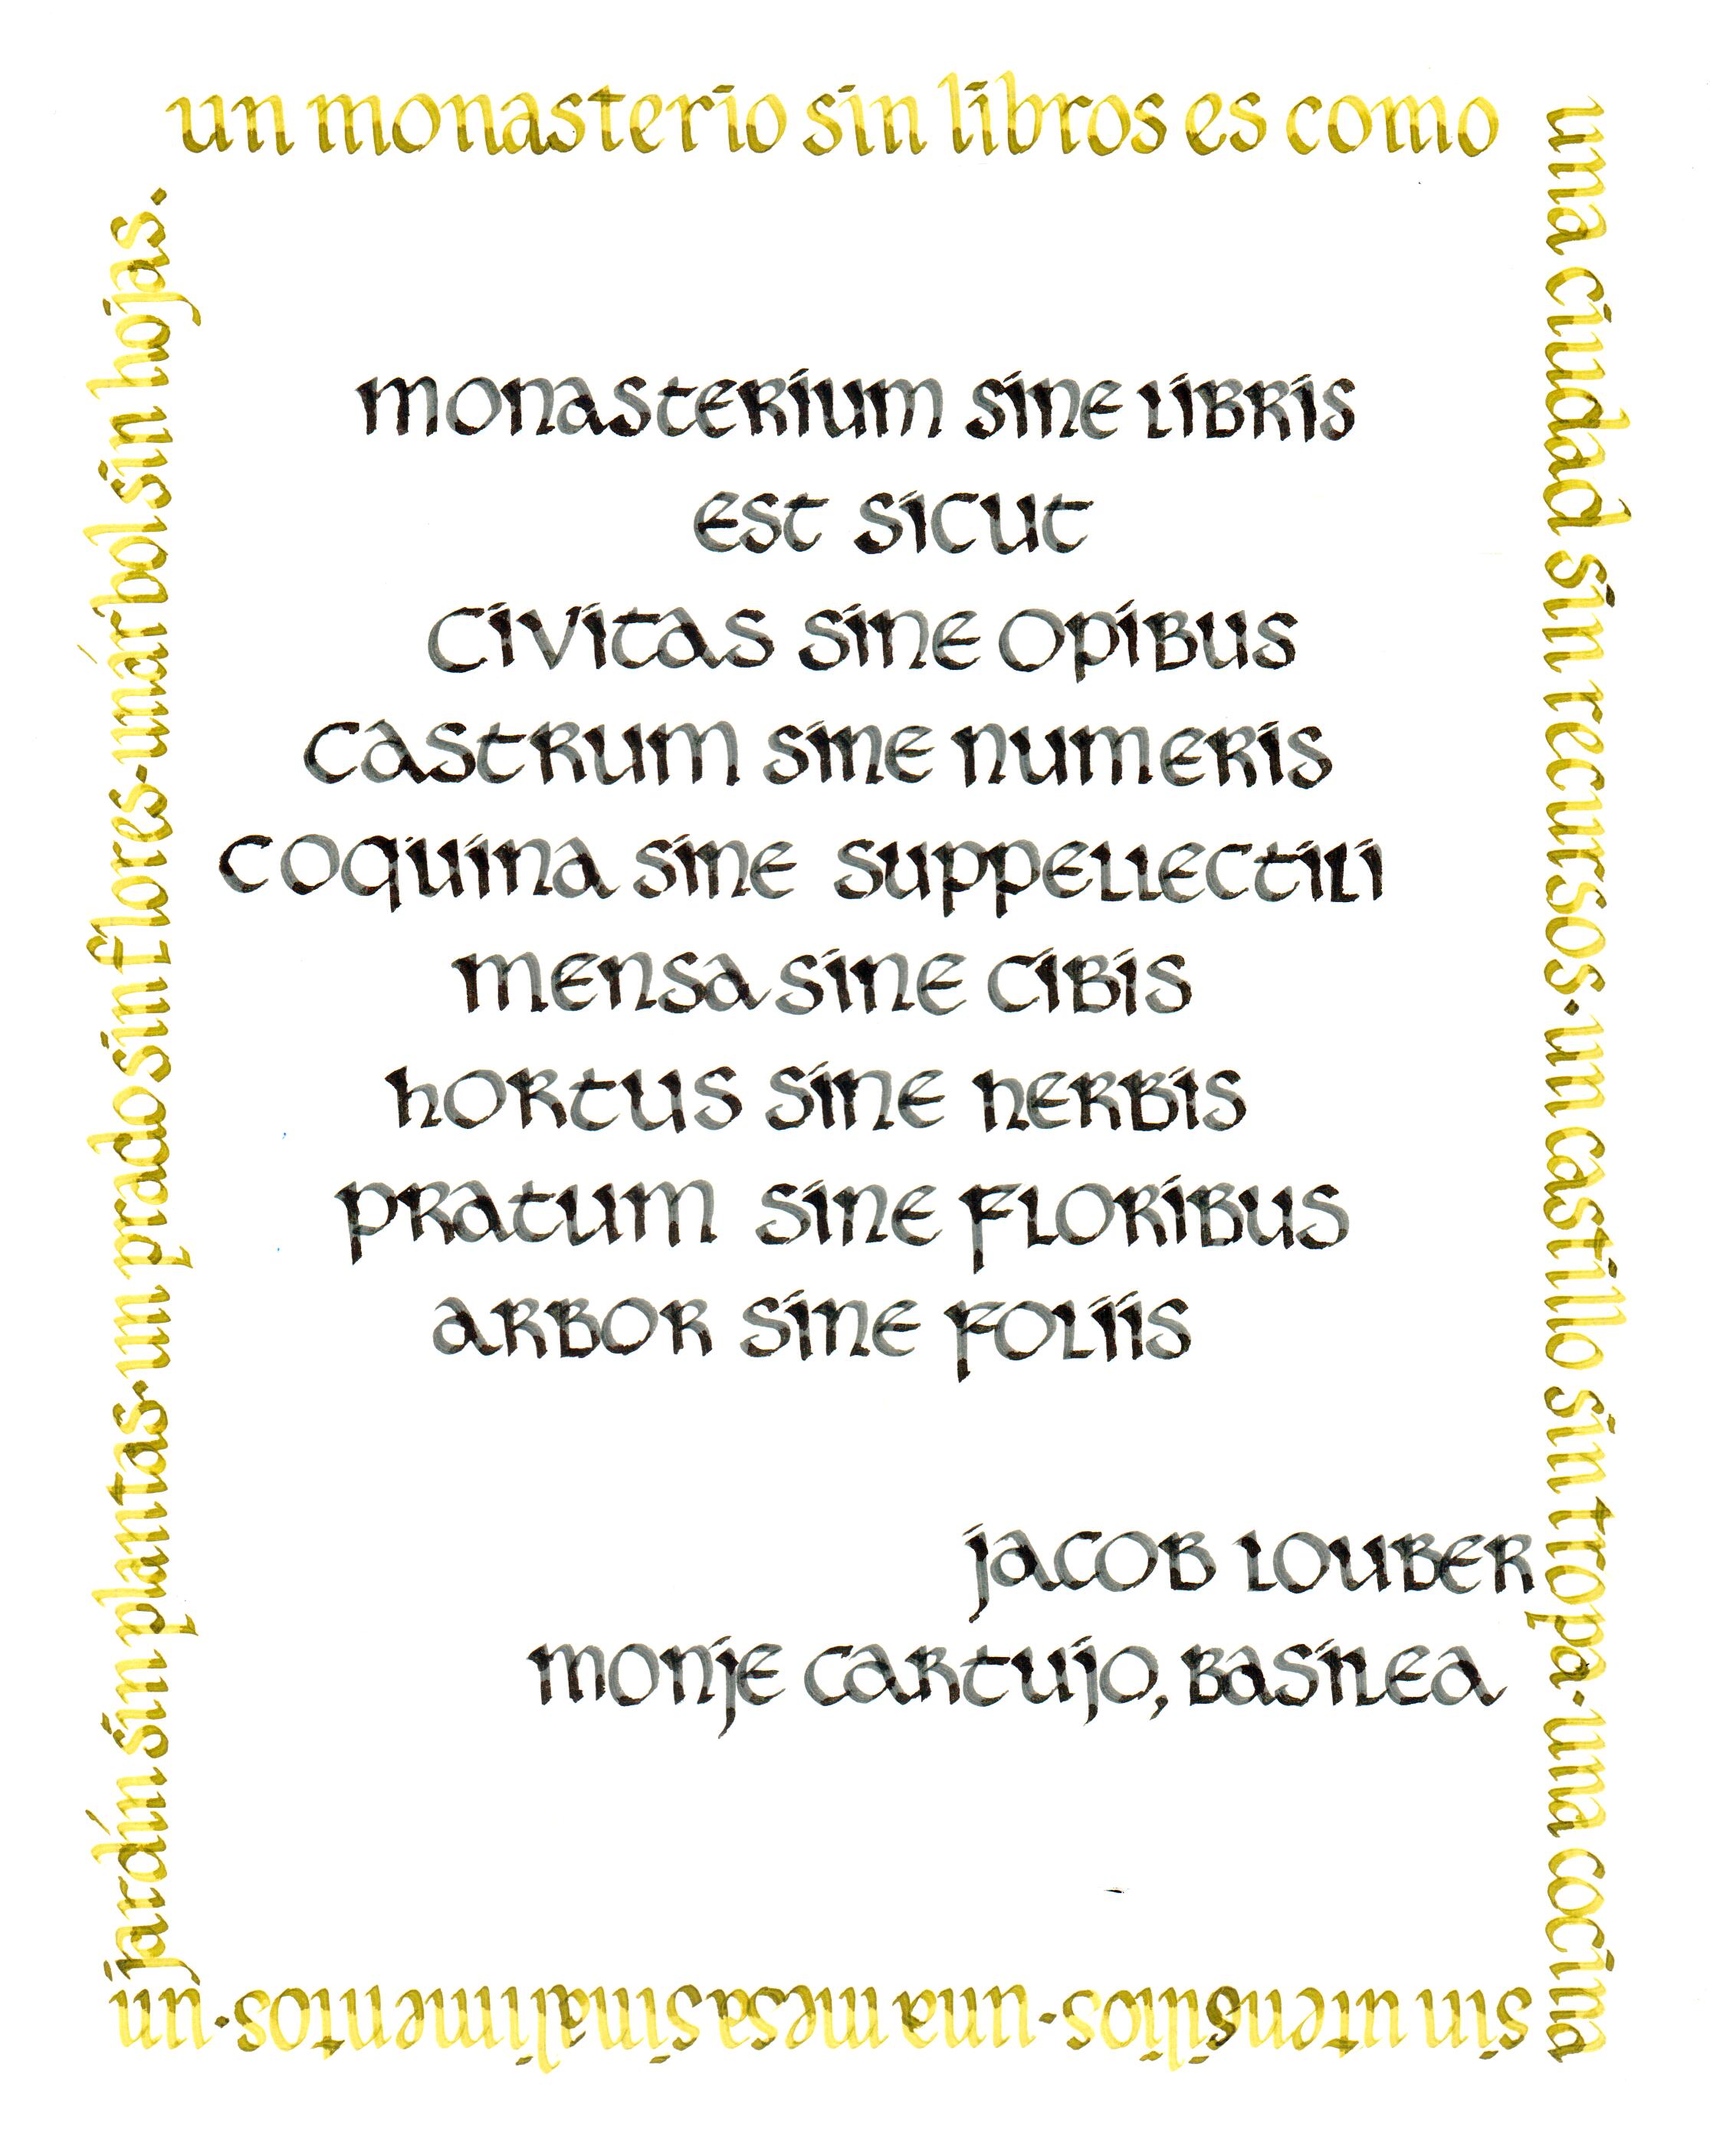 un monasterio sin libros es como
una ciudad sin recursos · un castillo sin tropa · una cocina
sin utensilios · una mesa sin alimentos · un
jardín sin plantas · un prado sin flores · un árbol sin hojas.
monasterium sine libris
est sicut
civitas sine opibus
castrum sine numeris
coquina sine suppellectili
mensa sine cibis
hortus sine herbis
pratum sine floribus
arbor sine foliis
jacob louber
monje cartujo, basilea